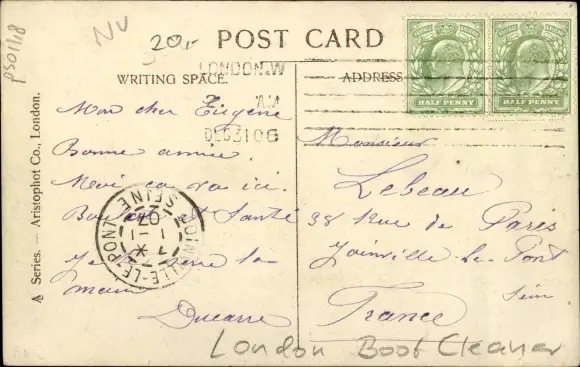 PS01/18
NV
20,-
POST CARD
WRITING SPACE.
ADDRESS
A Series. — Aristophot Co., London.
LONDON.W
DEC 31 06
HALF PENNY
HALF PENNY
Mon cher Eugène
Bonne année.
Moi ça va ici.
et Santé
Je serre la
main
Ducarre
JOINVILLE-LE-PONT
SEINE
7 1 07
Monsieur
Lebeau
38 Rue de Paris
Joinville-le-Pont
Seine
France
London Boot Cleaner